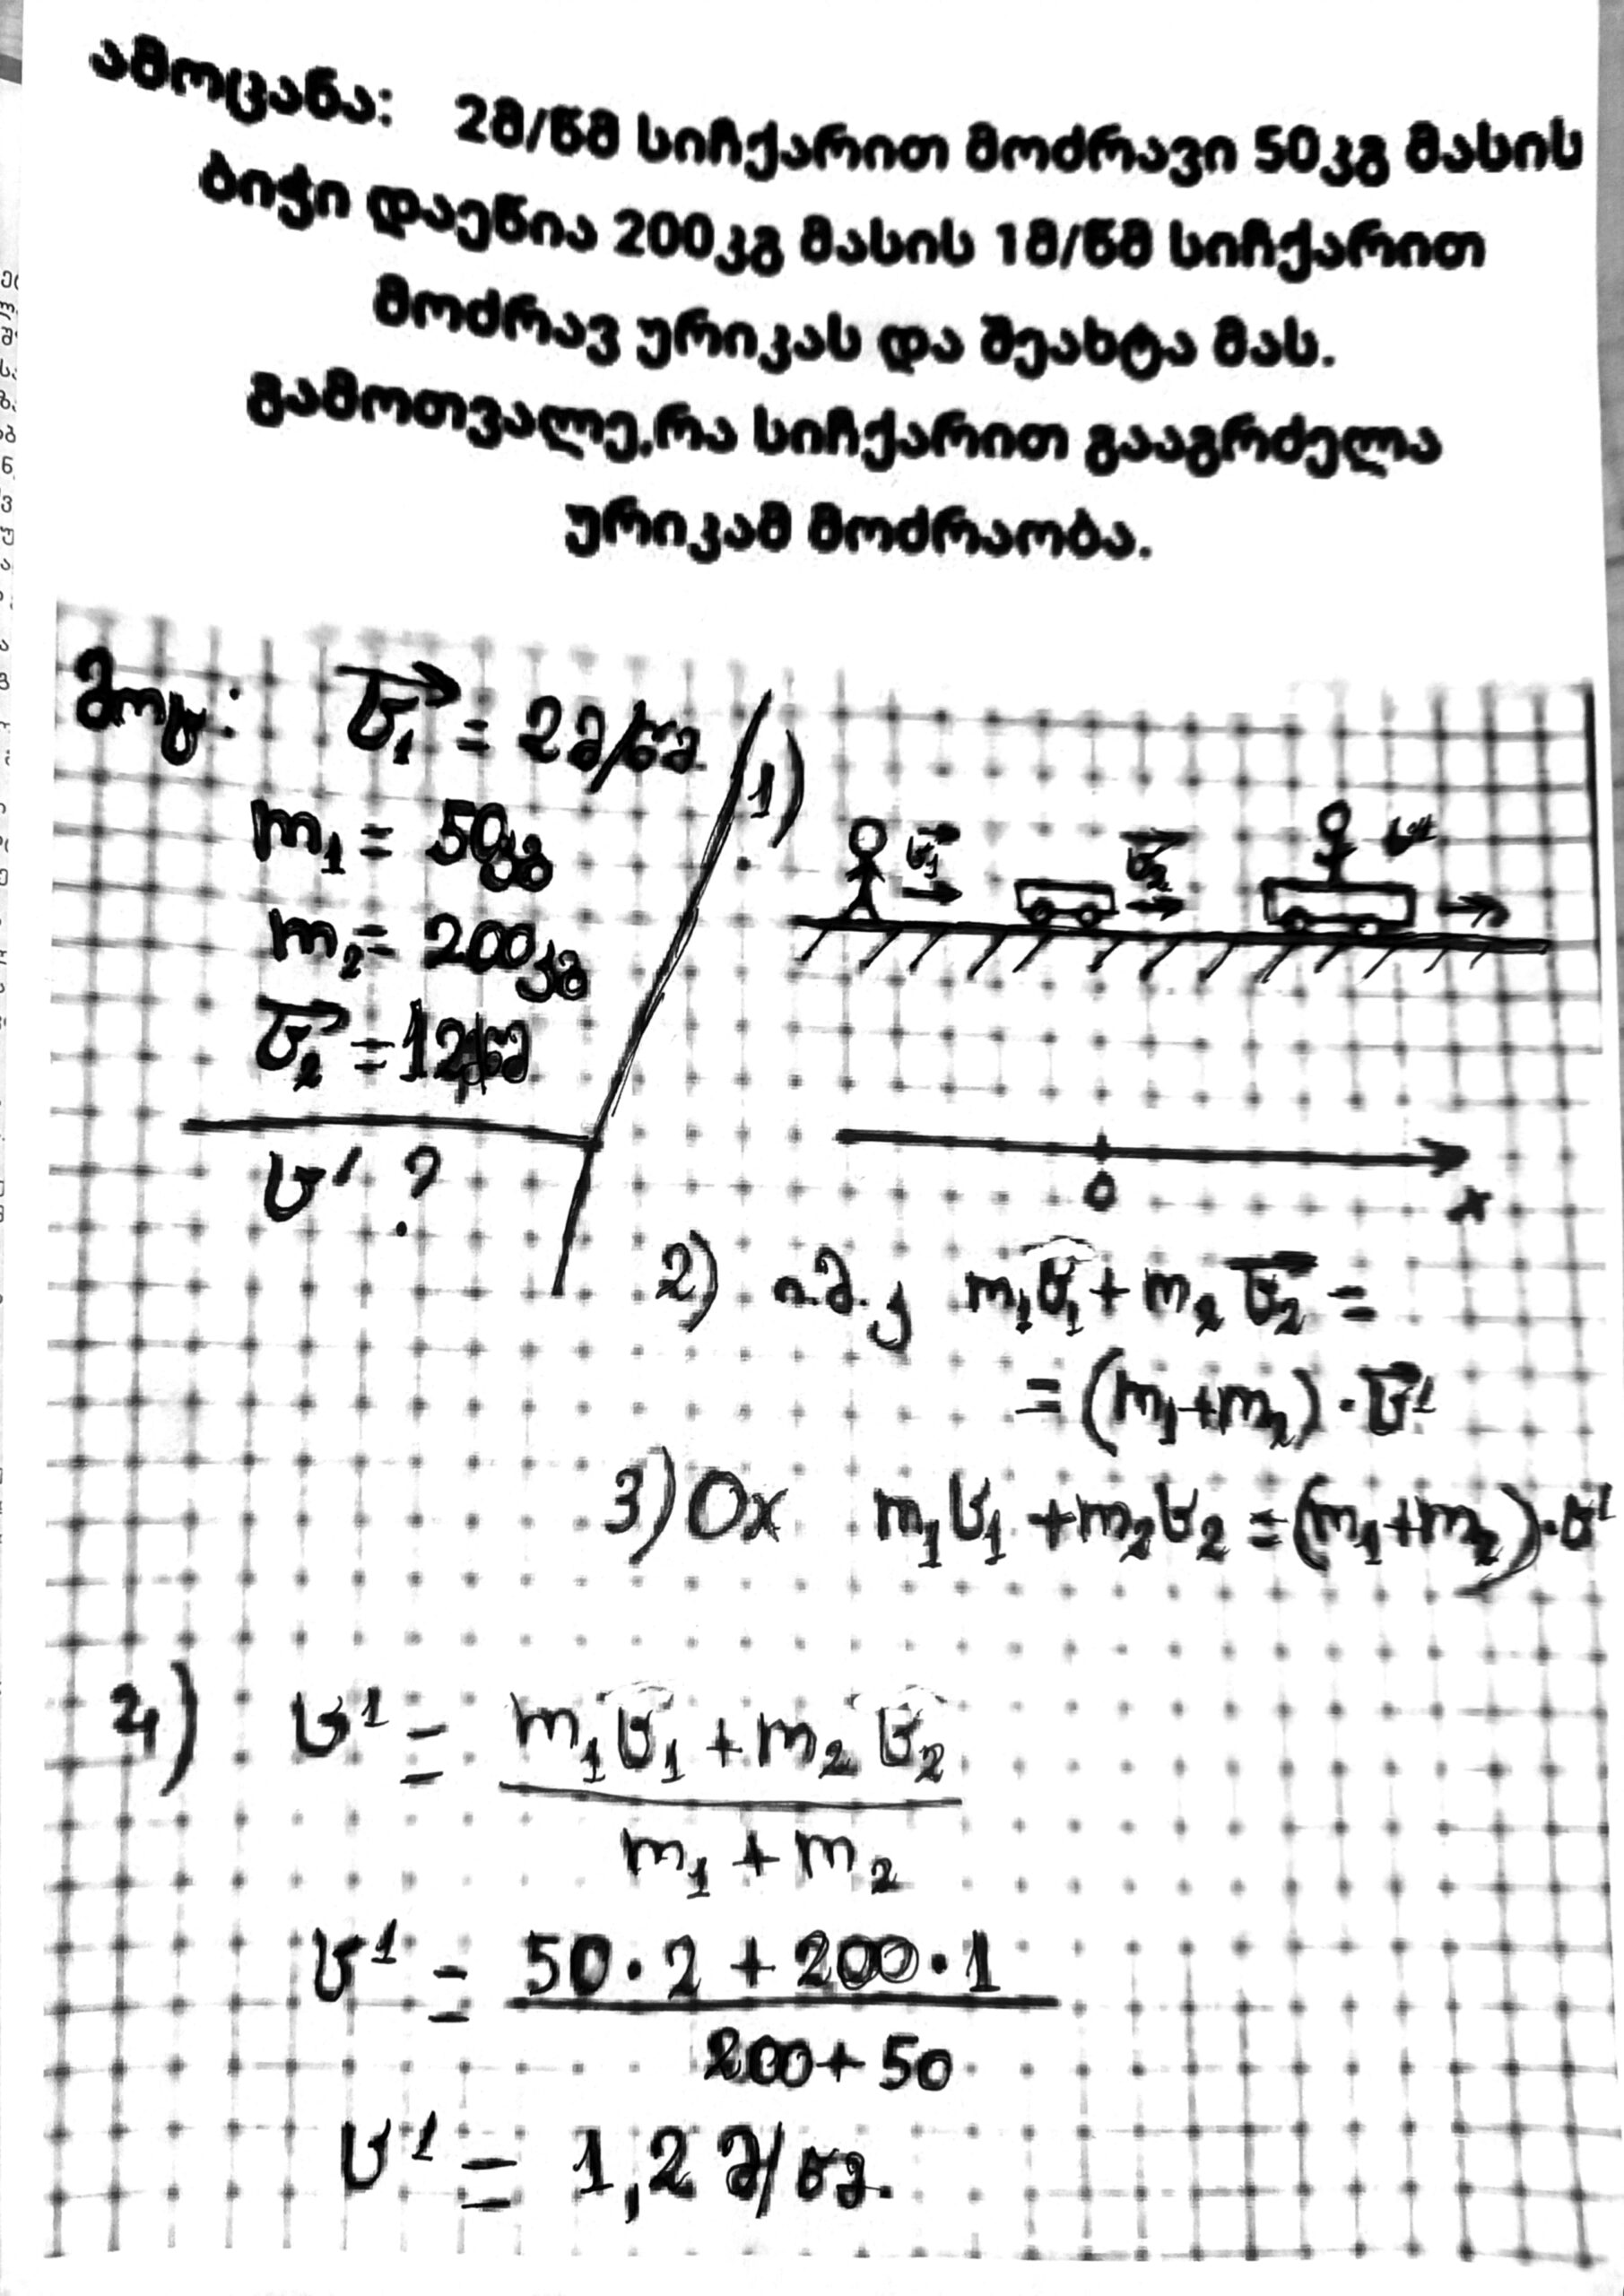 ამოცანა: 2მ/წმ სიჩქარით მოძრავი 50კგ მასის
ბიჭი დაეწია 200კგ მასის 1მ/წმ სიჩქარით
მოძრავ ურიკას და შეახტა მას.
გამოთვალე,რა სიჩქარით გააგრძელა
ურიკამ მოძრაობა.
მოც: v₁ = 2მ/წმ
m₁ = 50კგ
m₂ = 200კგ
v₂ = 1მ/წმ
v' ?
1)
v₁ v₂ v'
0 x
2) ი.მ.კ m₁v₁ + m₂v₂ =
= (m₁+m₂) · v¹
3) Ox m₁v₁ + m₂v₂ = (m₁+m₂) · v¹
4) v¹ = m₁v₁ + m₂v₂
m₁ + m₂
v¹ = 50 · 2 + 200 · 1
200 + 50
v¹ = 1,2 მ/წმ.